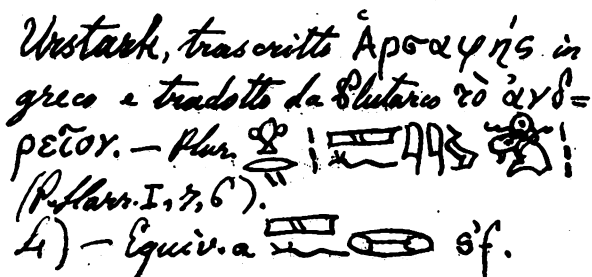 Urstark, trascritto Ἁρσαφής in
greco e tradotto da Plutarco τὸ ἀνδ=
ρεῖον. — Plur.
(P. Harr. I, 7, 6).
4) — Equiv. a s'f.